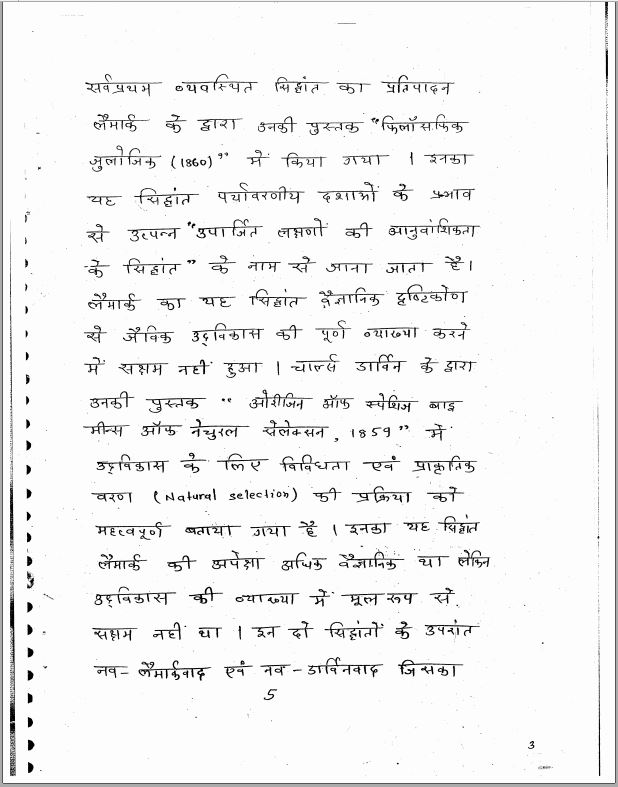 सर्वप्रथम व्यवस्थित सिद्धांत का प्रतिपादन
लैमार्क के द्वारा उनकी पुस्तक "फिलॉसफिक
जुलोजिक (1860)" में किया गया । इनका
यह सिद्धांत पर्यावरणीय दशाओं के प्रभाव
से उत्पन्न "उपार्जित लक्षणों की आनुवांशिकता
के सिद्दांत" के नाम से जाना जाता है।
लैमार्क का यह सिद्दांत वैज्ञानिक दृष्टिकोण
से जैविक उद्‌विकास की पूर्ण व्याख्या करने
में सक्षम नहीं हुआ । चार्ल्स डार्विन के द्वारा
उनकी पुस्तक " ओरीजिन ऑफ स्पेशिज बाइ
मीन्स ऑफ नेचुरल सेलेक्सन, 1859" में
उद्‌विकास के लिए विविधता एवं प्राकृतिक
वरण (Natural selection) की प्रक्रिया को
महत्वपूर्ण बताया गया है । इनका यह सिद्दांत
लैमार्क की अपेक्षा अधिक वैज्ञानिक था लेकिन
उद्‌विकास की व्याख्या में मूल रूप से
सक्षम नहीं था । इन दो सिद्दांतों के उपरांत
नव- लैमार्कवाद एवं नव - डार्विनवाद जिसका
5
3